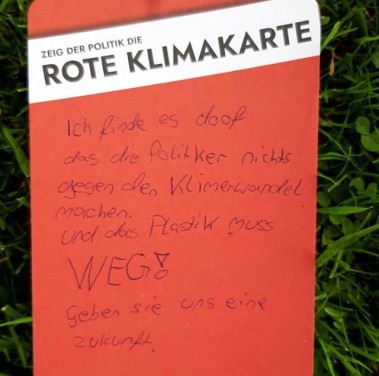 ZEIG DER POLITIK DIE
ROTE KLIMAKARTE
Ich finde es doof
das die Politker nichts
gegen den Klimerwandel
machen.
und das Plastik muss
WEG!
Geben sie uns eine
zukunft.